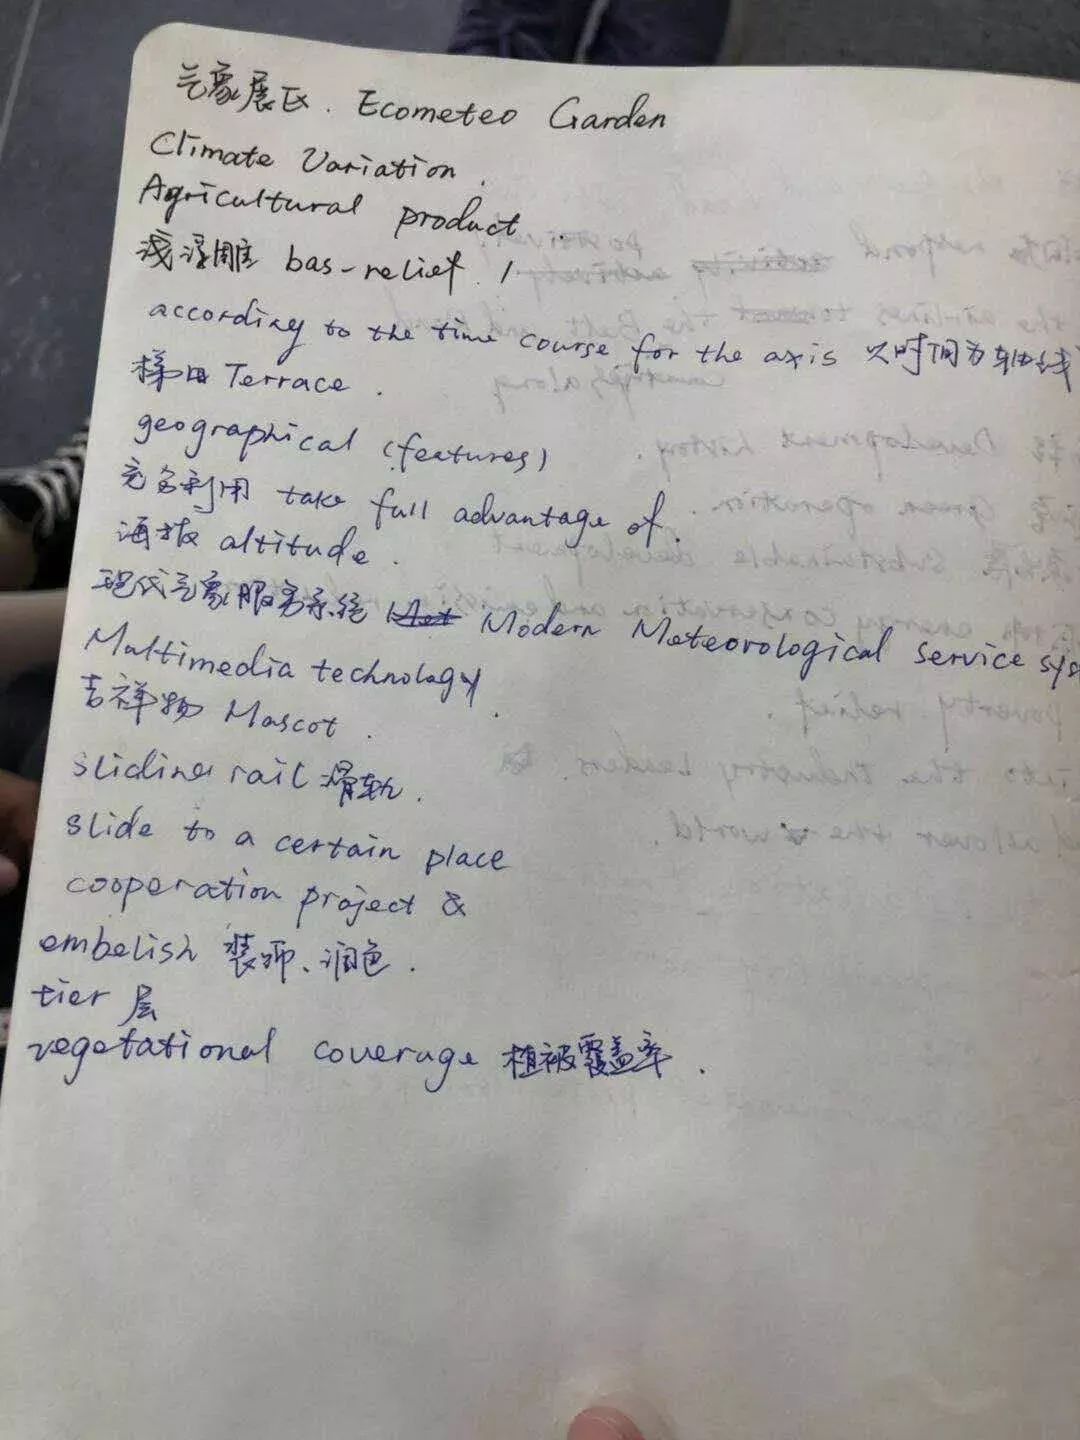 气象展区. Ecometeo Garden
Climate Variation.
Agricultural product.
浅浮雕 bas-relief. /
according to the time course for the axis 以时间为轴线
梯田 Terrace.
geographical (features)
充分利用 take full advantage of.
海拔 altitude.
现代气象服务系统 Modern Meteorological service sys
Multimedia technology.
吉祥物 Mascot.
sliding rail 滑轨.
slide to a certain place
cooperation project &
embelish 装饰、润色.
tier 层
vegetational coverage 植被覆盖率.